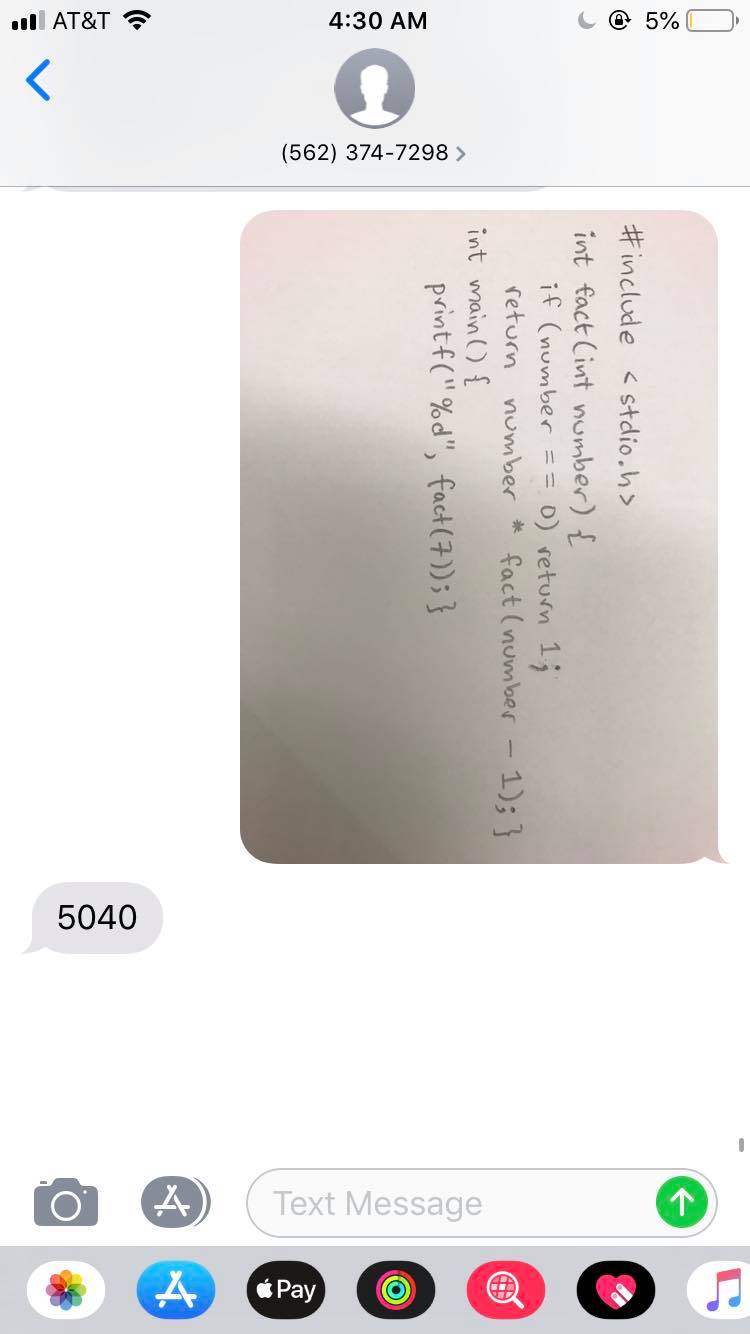 AT&T 4:30 AM 5%
(562) 374-7298
#include <stdio.h>
int fact(int number) {
if (number == 0) return 1;
return number * fact(number - 1); }
int main() {
printf("%d", fact(7)); }
5040
Text Message
Pay